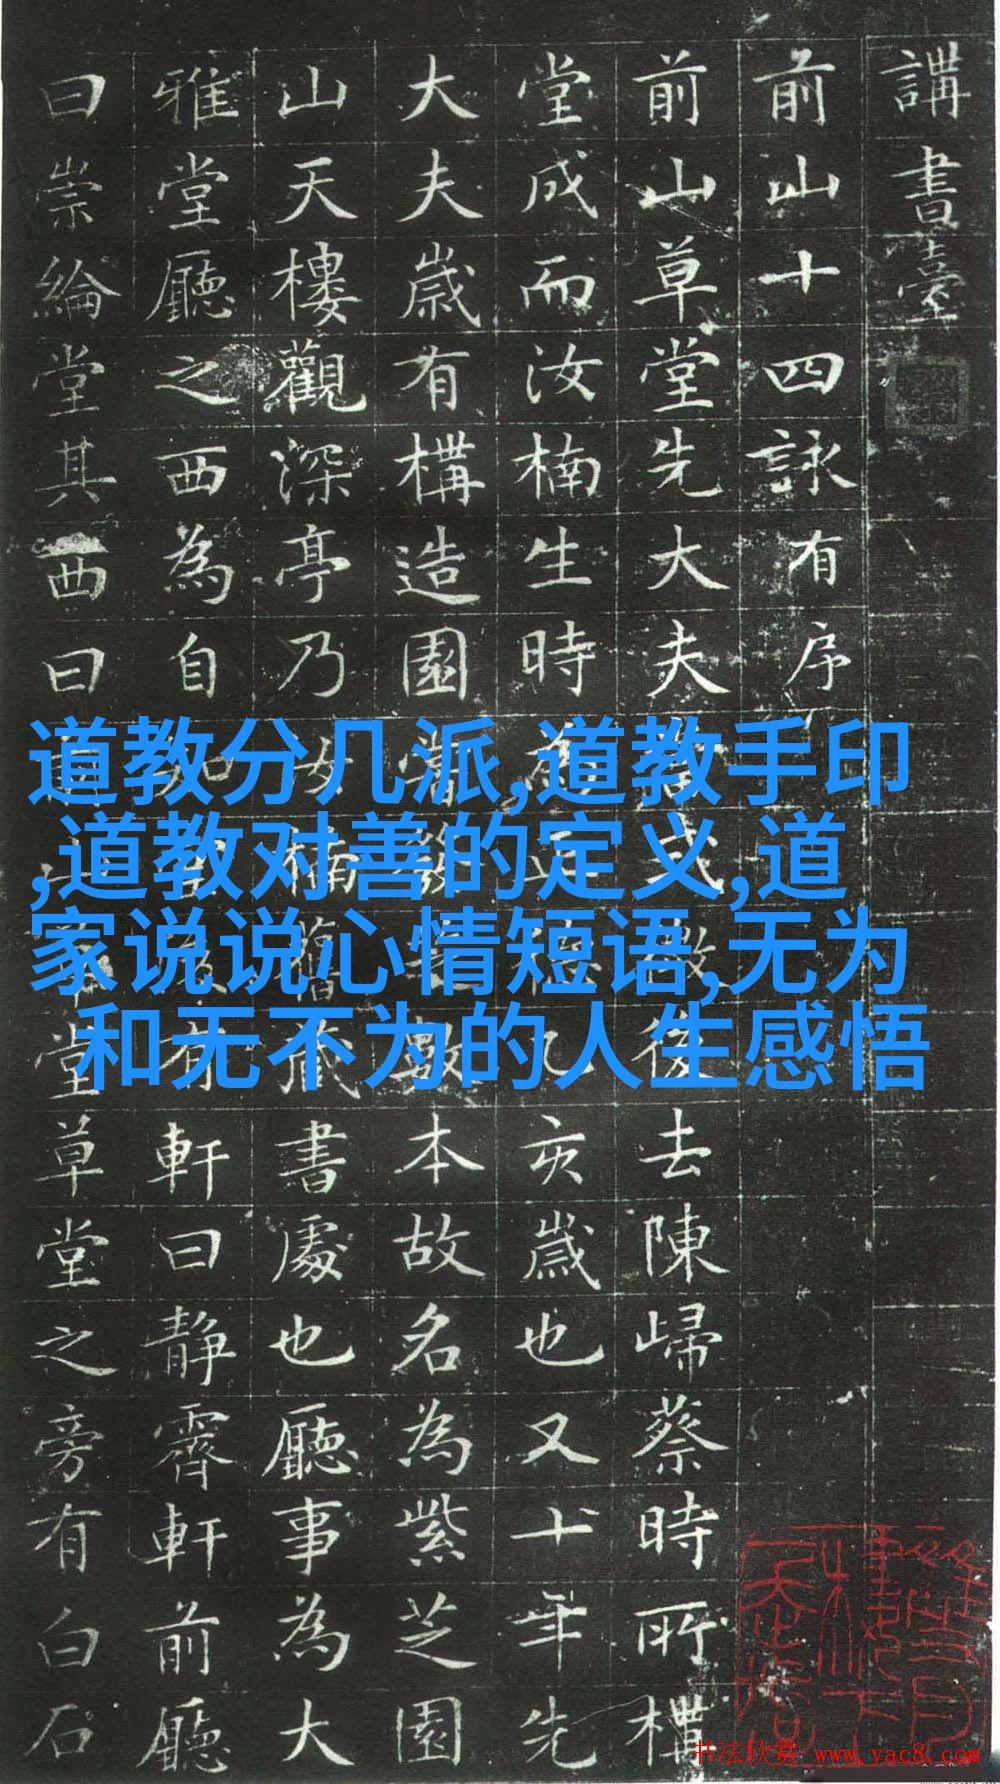 講書臺
前山十四詠有序
前山草堂先大夫成後去陳歸蔡時所
堂成而汝楠生時亥歲也又十年先
大夫歲有構造園數本故名為紫芝園
山天樓觀深亭乃汝楠藏書處也廳事為大
雅堂廳之西為自有軒曰靜齋軒前廳
曰崇綸堂其西曰堂草堂之旁有白石
道教分几派,道教手印
,道教对善的定义,道
家说说心情短语,无为
和无不为的人生感悟
书法欣赏 www.yac8.com